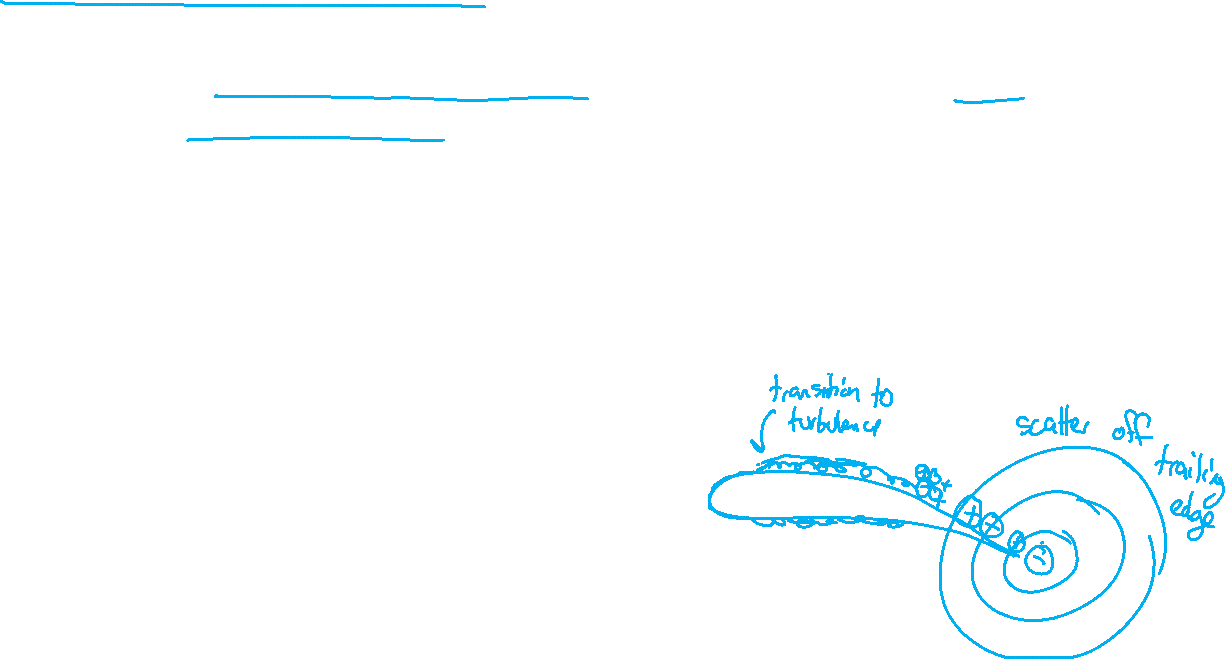 transition to
turbulence
scatter off
trailing
edge